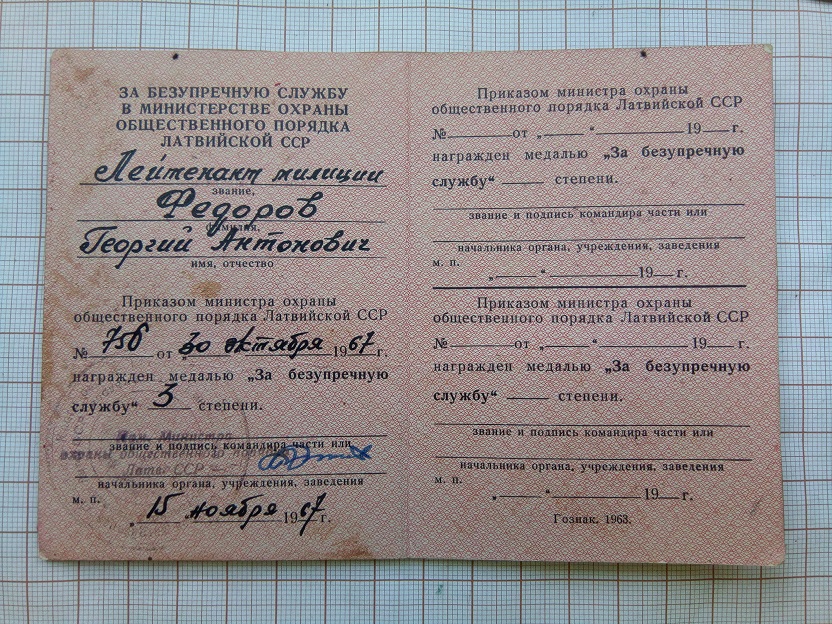 ЗА БЕЗУПРЕЧНУЮ СЛУЖБУ
В МИНИСТЕРСТВЕ ОХРАНЫ
ОБЩЕСТВЕННОГО ПОРЯДКА
ЛАТВИЙСКОЙ ССР
Лейтенант милиции
звание,
Федоров
фамилия,
Георгий Антонович
имя, отчество
Приказом министра охраны
общественного порядка Латвийской ССР
№ 756 от „30 октября 1967г.
награжден медалью „За безупречную
службу“ 3 степени.
Зам. Министра
звание и подпись командира части или
охраны общественного порядка
Латв. ССР —
начальника органа, учреждения, заведения
м. п.
„15 ноября 1967г.
Приказом министра охраны
общественного порядка Латвийской ССР
№ от „ “ 19 г.
награжден медалью „За безупречную
службу“ степени.
звание и подпись командира части или
начальника органа, учреждения, заведения
м. п.
„ “ 19 г.
Приказом министра охраны
общественного порядка Латвийской ССР
№ от „ “ 19 г.
награжден медалью „За безупречную
службу“ степени.
звание и подпись командира части или
начальника органа, учреждения, заведения
м. п.
„ “ 19 г.
Гознак. 1963.